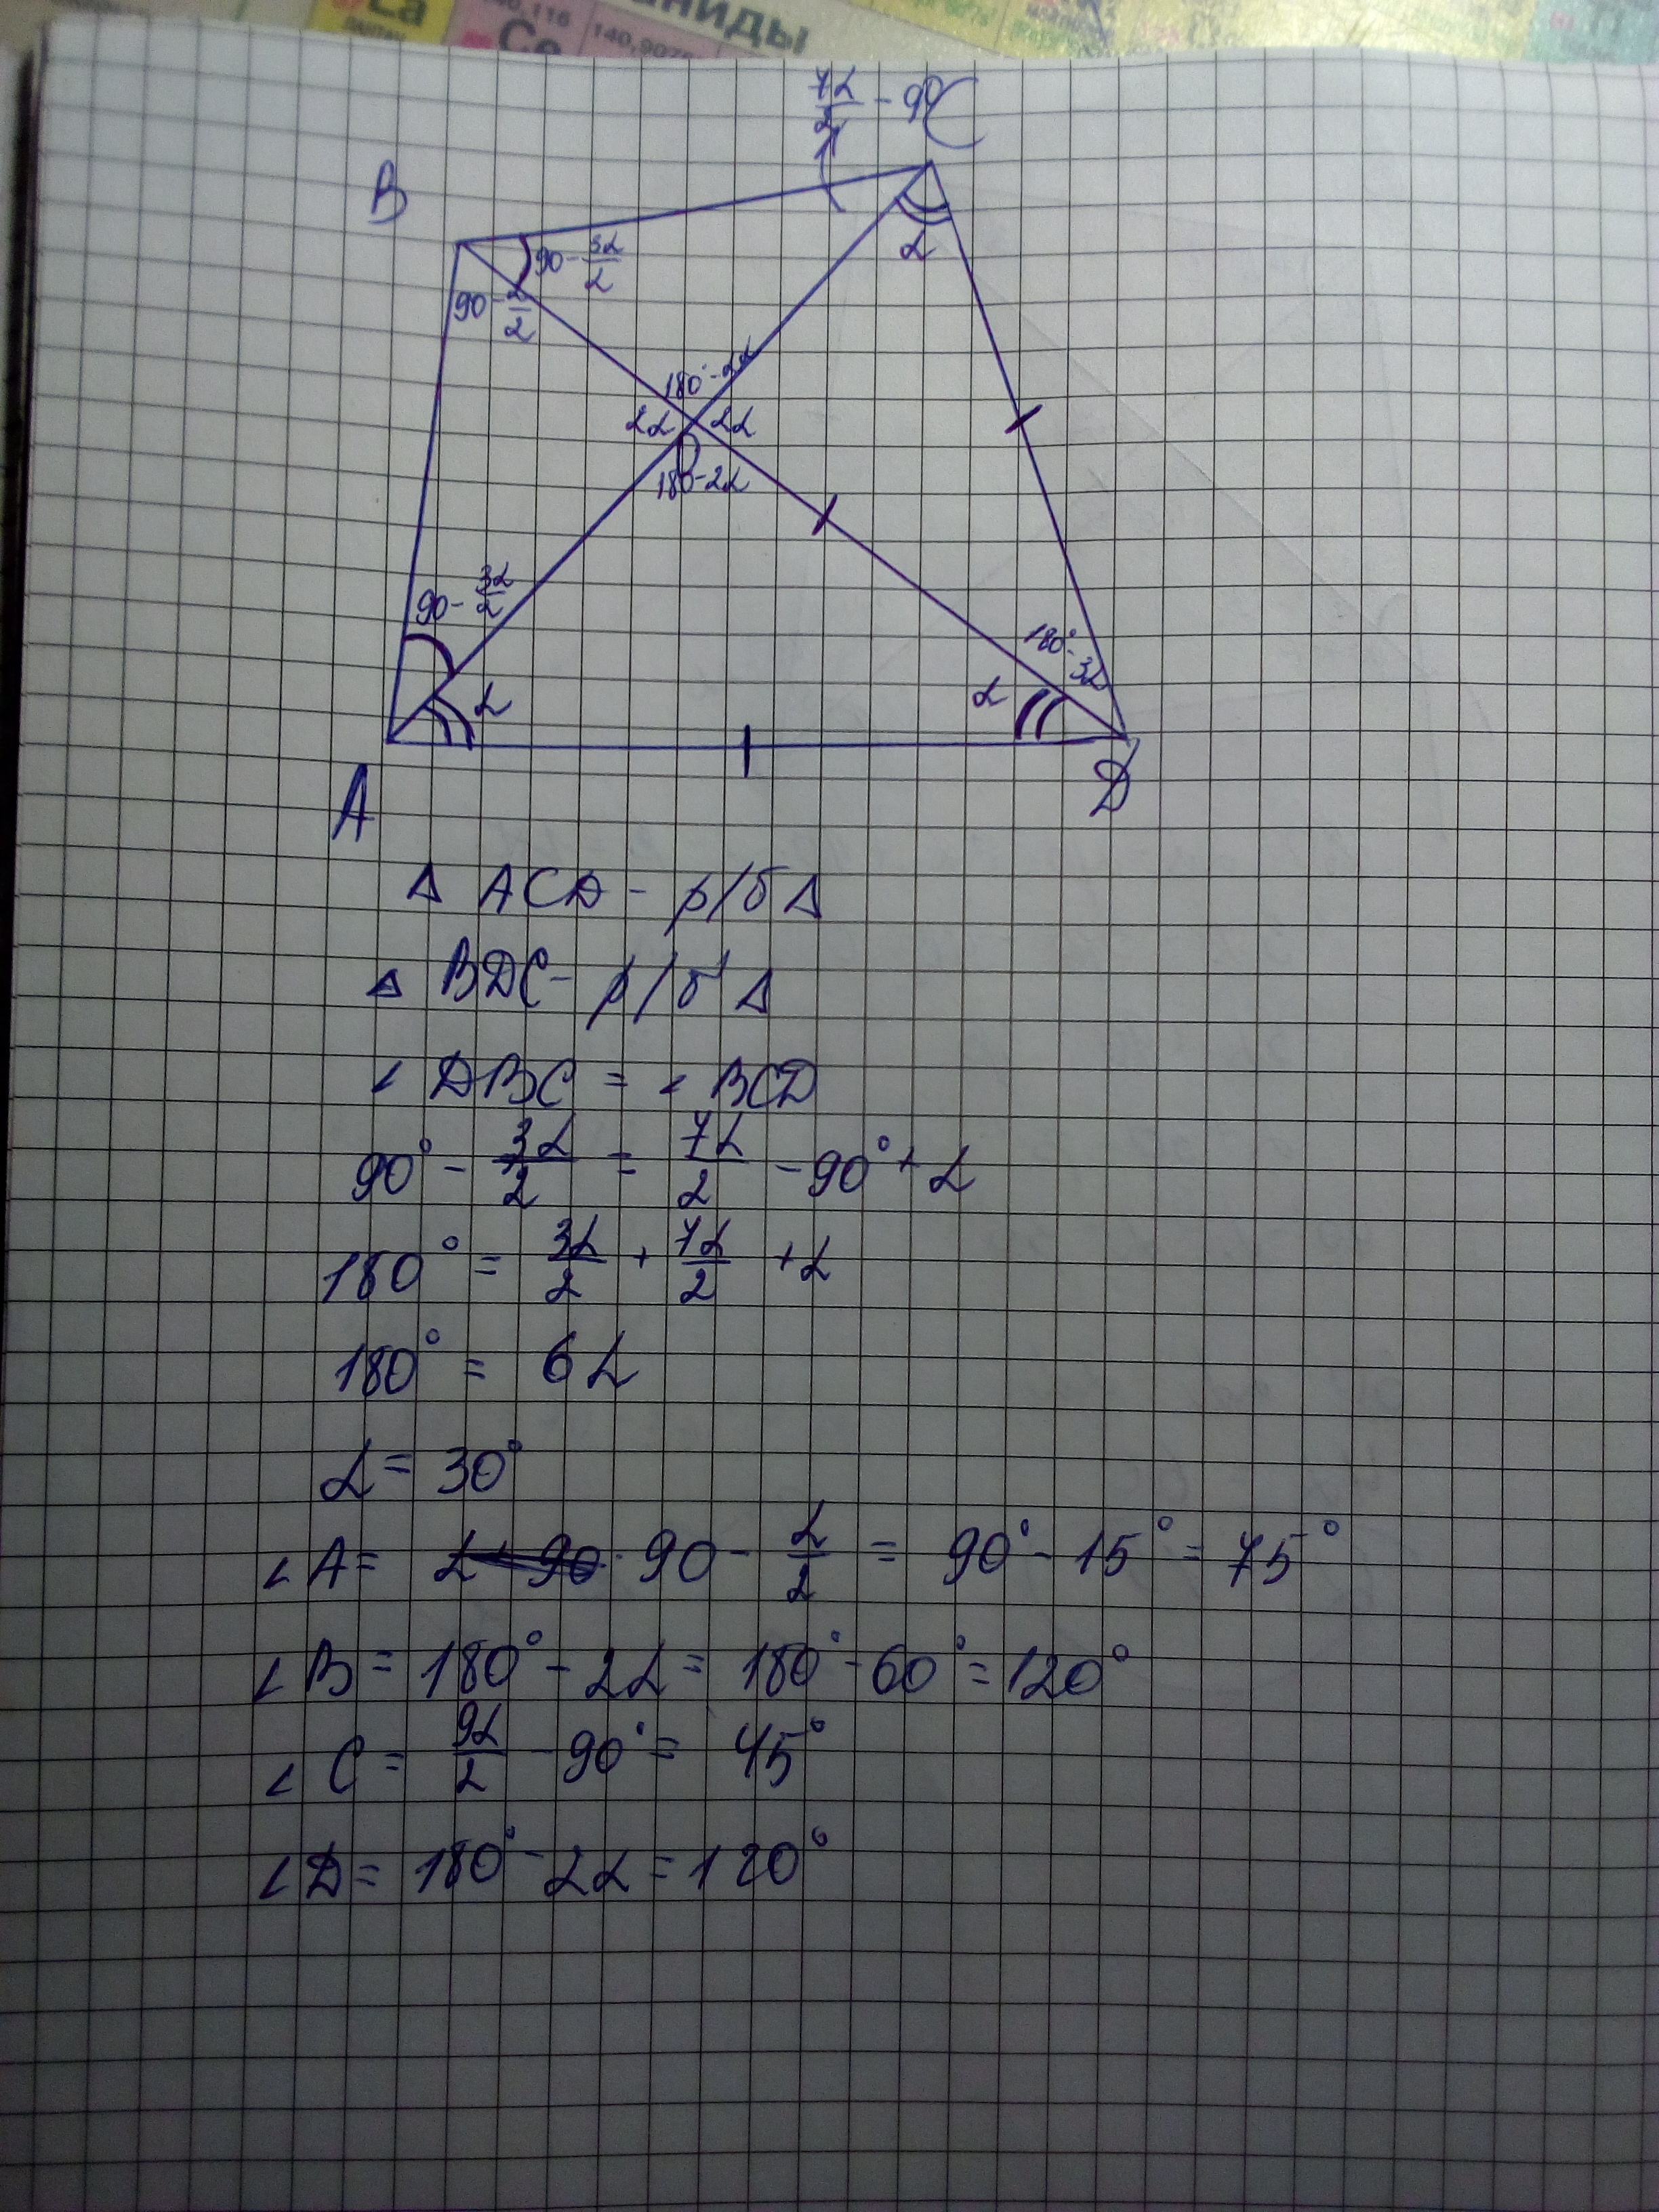 La
Ce
140,116
140,9075
аниды
7α/2 - 90
C
B
90 - 3α/2
90 - α/2
α
180° - 2α
2α 2α
180 - 2α
90 - 3α/2
180° - 3α
α
α
A
D
Δ ACD - р/б Δ
Δ BDC - р/б Δ
∠ DBC = ∠ BCD
90° - 3α/2 = 7α/2 - 90° + α
180° = 3α/2 + 7α/2 + α
180° = 6α
α = 30°
∠A = 90 - α/2 = 90° - 15° = 75°
∠B = 180° - 2α = 180° - 60° = 120°
∠C = 9α/2 - 90° = 45°
∠D = 180° - 2α = 120°